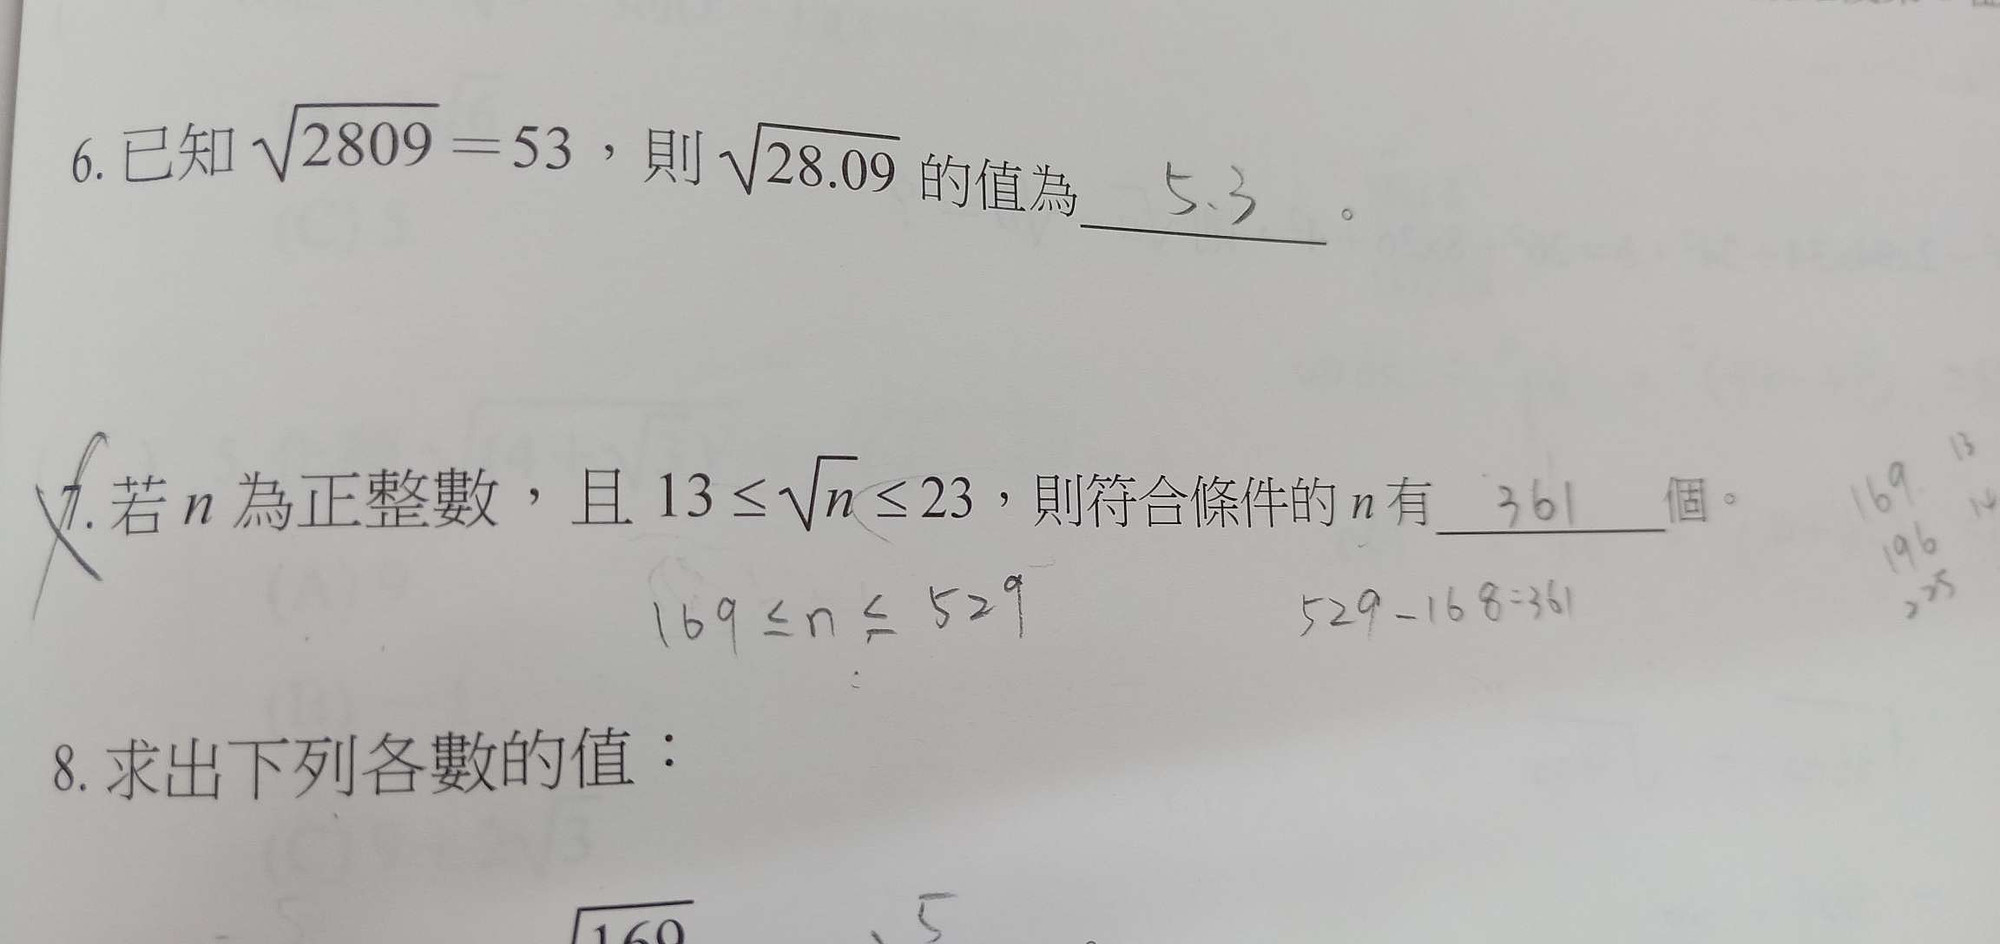 6. 已知 √2809 = 53，則 √28.09 的值為 5.3 。
7. 若 n 為正整數，且 13 ≤ √n ≤ 23，則符合條件的 n 有 361 個。
169 ≤ n ≤ 529
529 - 168 = 361
13
169
14
196
225
8. 求出下列各數的值：
√169
5